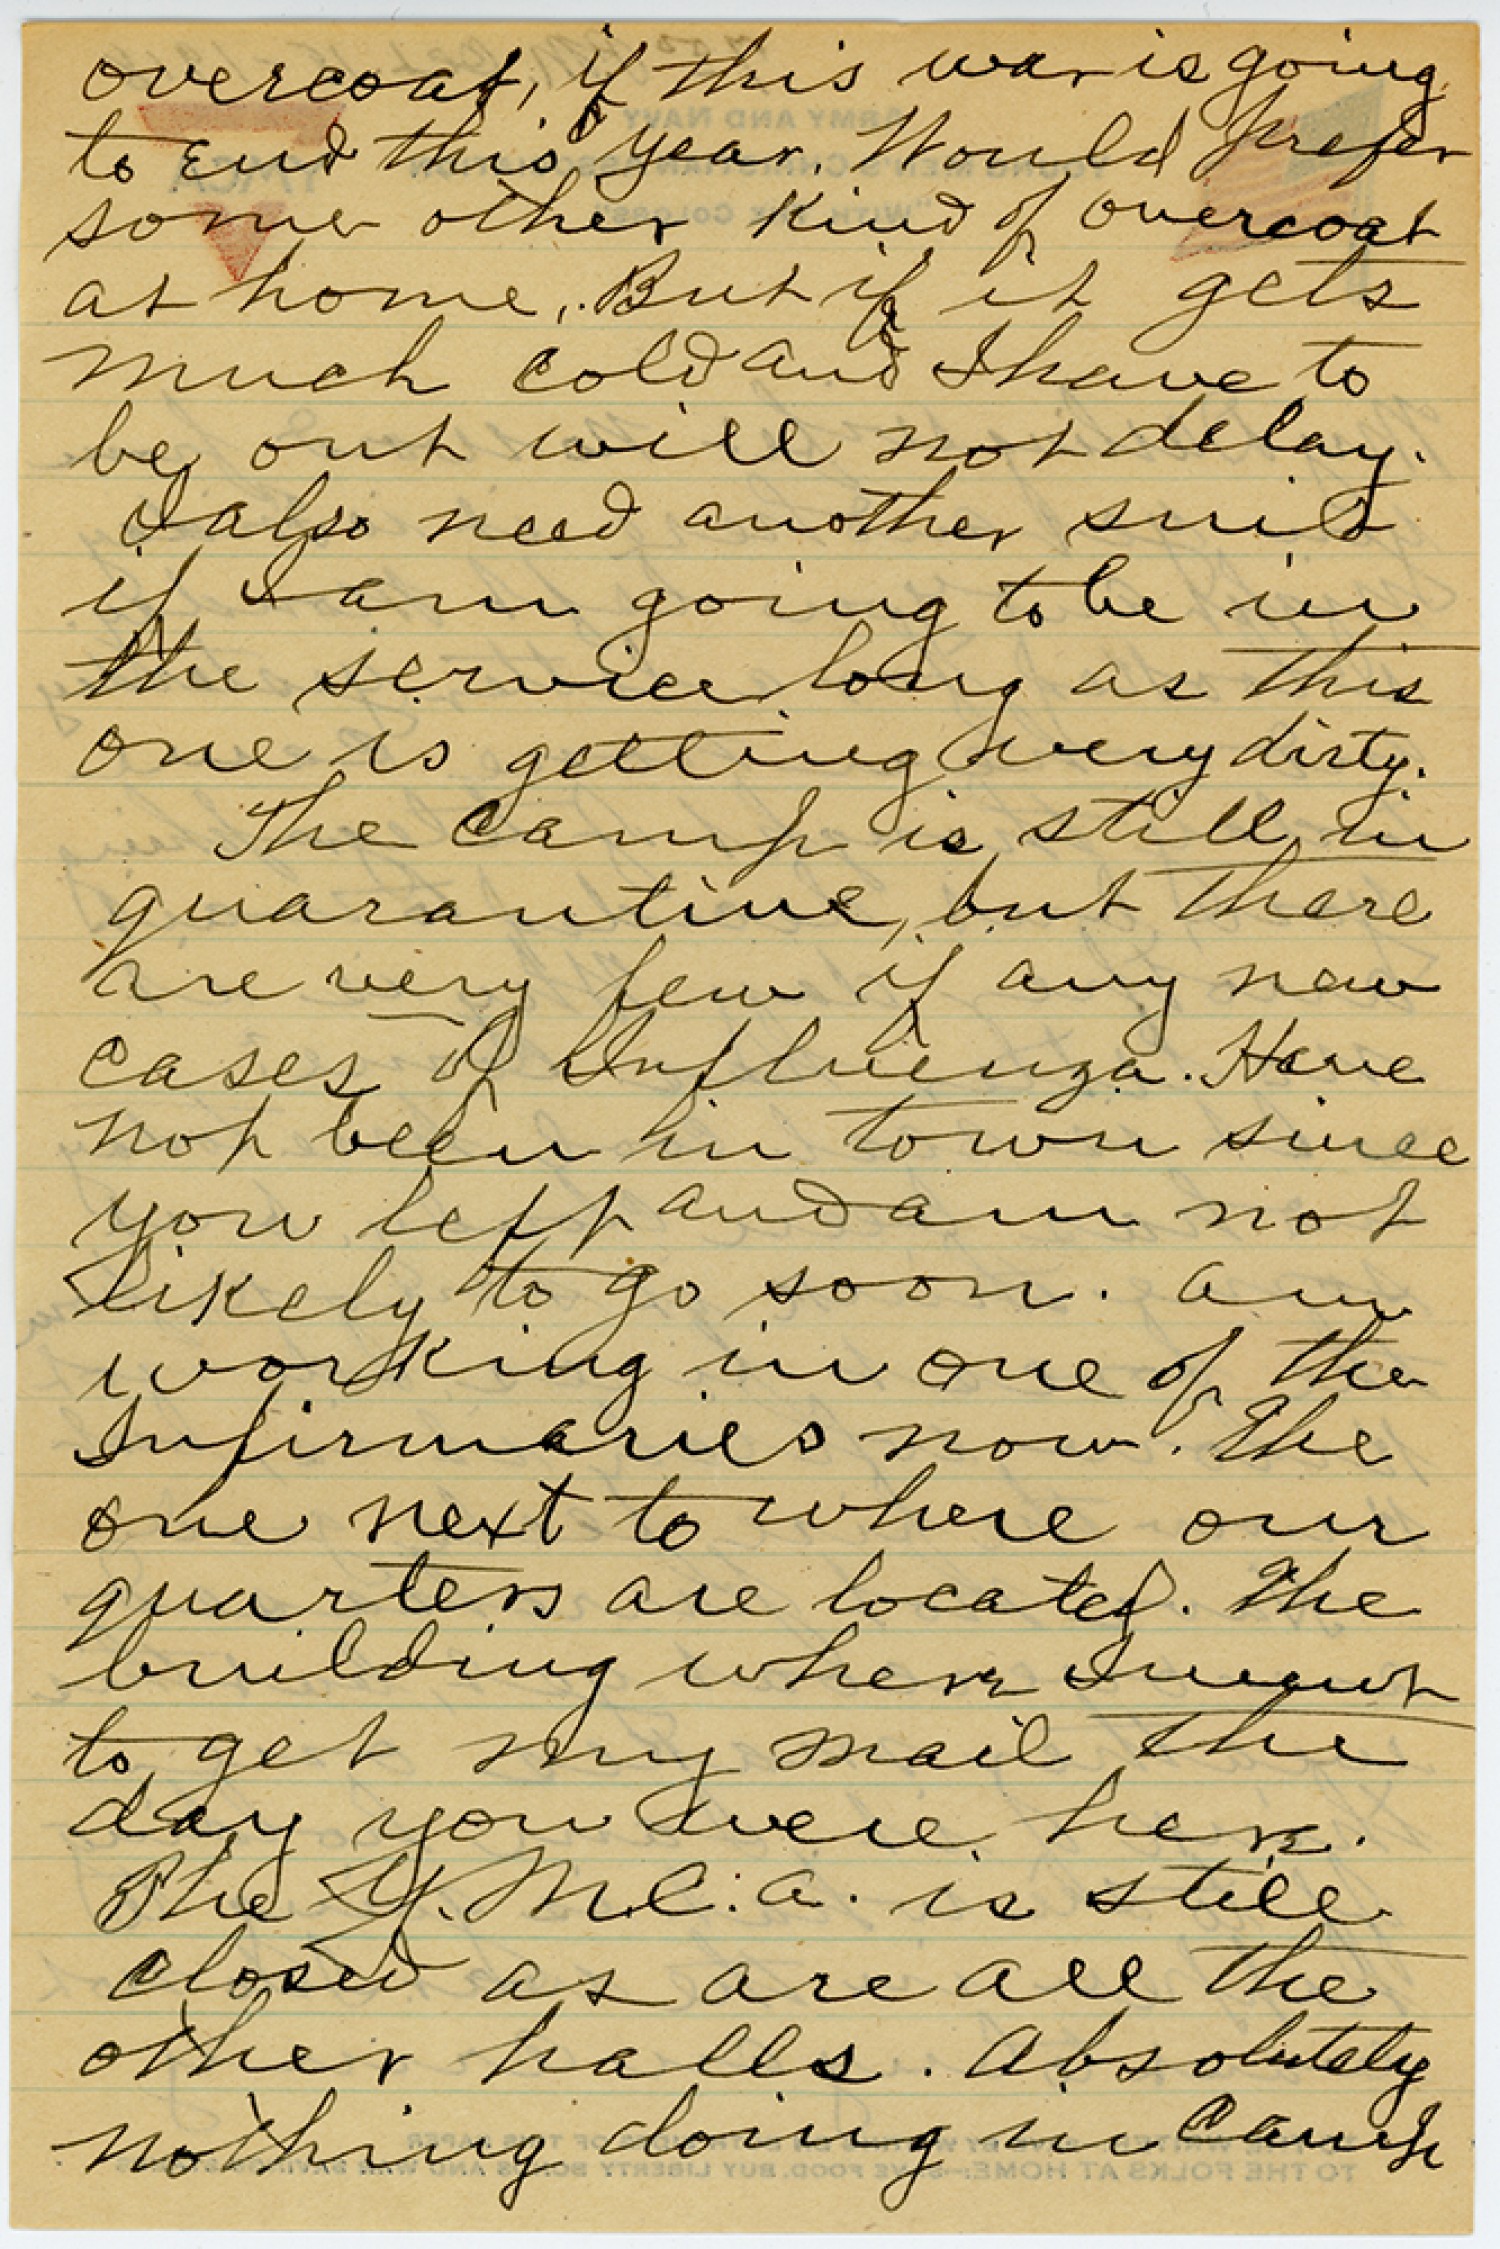 overcoat, if this war is going
to end this year. Would prefer
some other kind of overcoat
at home. But if it gets
much cold and I have to
be out will not delay.
I also need another suit
if I am going to be in
the service long as this
one is getting very dirty.
The camp is still in
quarantine, but there
are very few if any new
cases of Influenza. Have
not been in town since
you left and am not
likely to go soon. am
working in one of the
Infirmaries now. The
one next to where our
quarters are located. The
building where I went
to get my mail the
day you were here.
The Y.M.C.A. is still
closed as are all the
other halls. Absolutely
nothing doing in camp